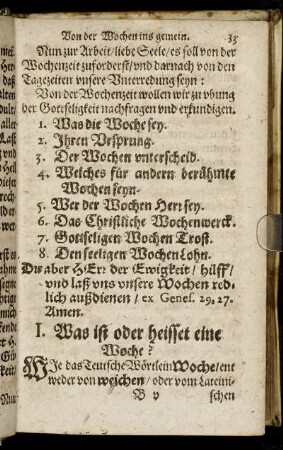 Von der Wochen ins gemein. 33
Nun zur Arbeit/ liebe Seele/ es soll von der
Wochenzeit zuforderst/ und darnach von den
Tagezeiten vnsere Vnterredung seyn:
Von der Wochenzeit wollen wir zu vbung
der Gottseligkeit nachfragen vnd erkundigen.
1. Was die Woche sey.
2. Ihren Vrsprung.
3. Der Wochen vnterscheid.
4. Welches für andern berühmte
Wochen seyn.
5. Wer der Wochen Herr sey.
6. Das Christliche Wochenwerck.
7. Gottseligen Wochen Trost.
8. Den seeligen Wochen Lohn.
Du aber HErr der Ewigkeit/ hilff/
und laß uns vnsere Wochen red-
lich außdienen/ ex Genes. 29, 27.
Amen.
I. Was ist oder heisset eine
Woche?
WIe das Teutsche Wörtlein Woche/ ent
weder von weichen/ oder vom Lateini-
B v schen